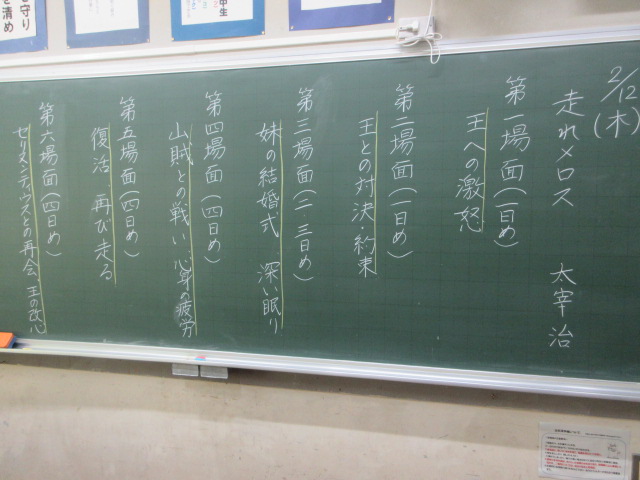 2/12(木)
走れメロス 太宰治
第一場面(一日め)
王への激怒
第二場面(一日め)
王との対決・約束
第三場面(二、三日め)
妹の結婚式 深い眠り
第四場面(四日め)
山賊との戦い 心身の疲労
第五場面(四日め)
復活 再び走る
第六場面(四日め)
セリヌンティウスとの再会、王の改心
中生
守り
を清め